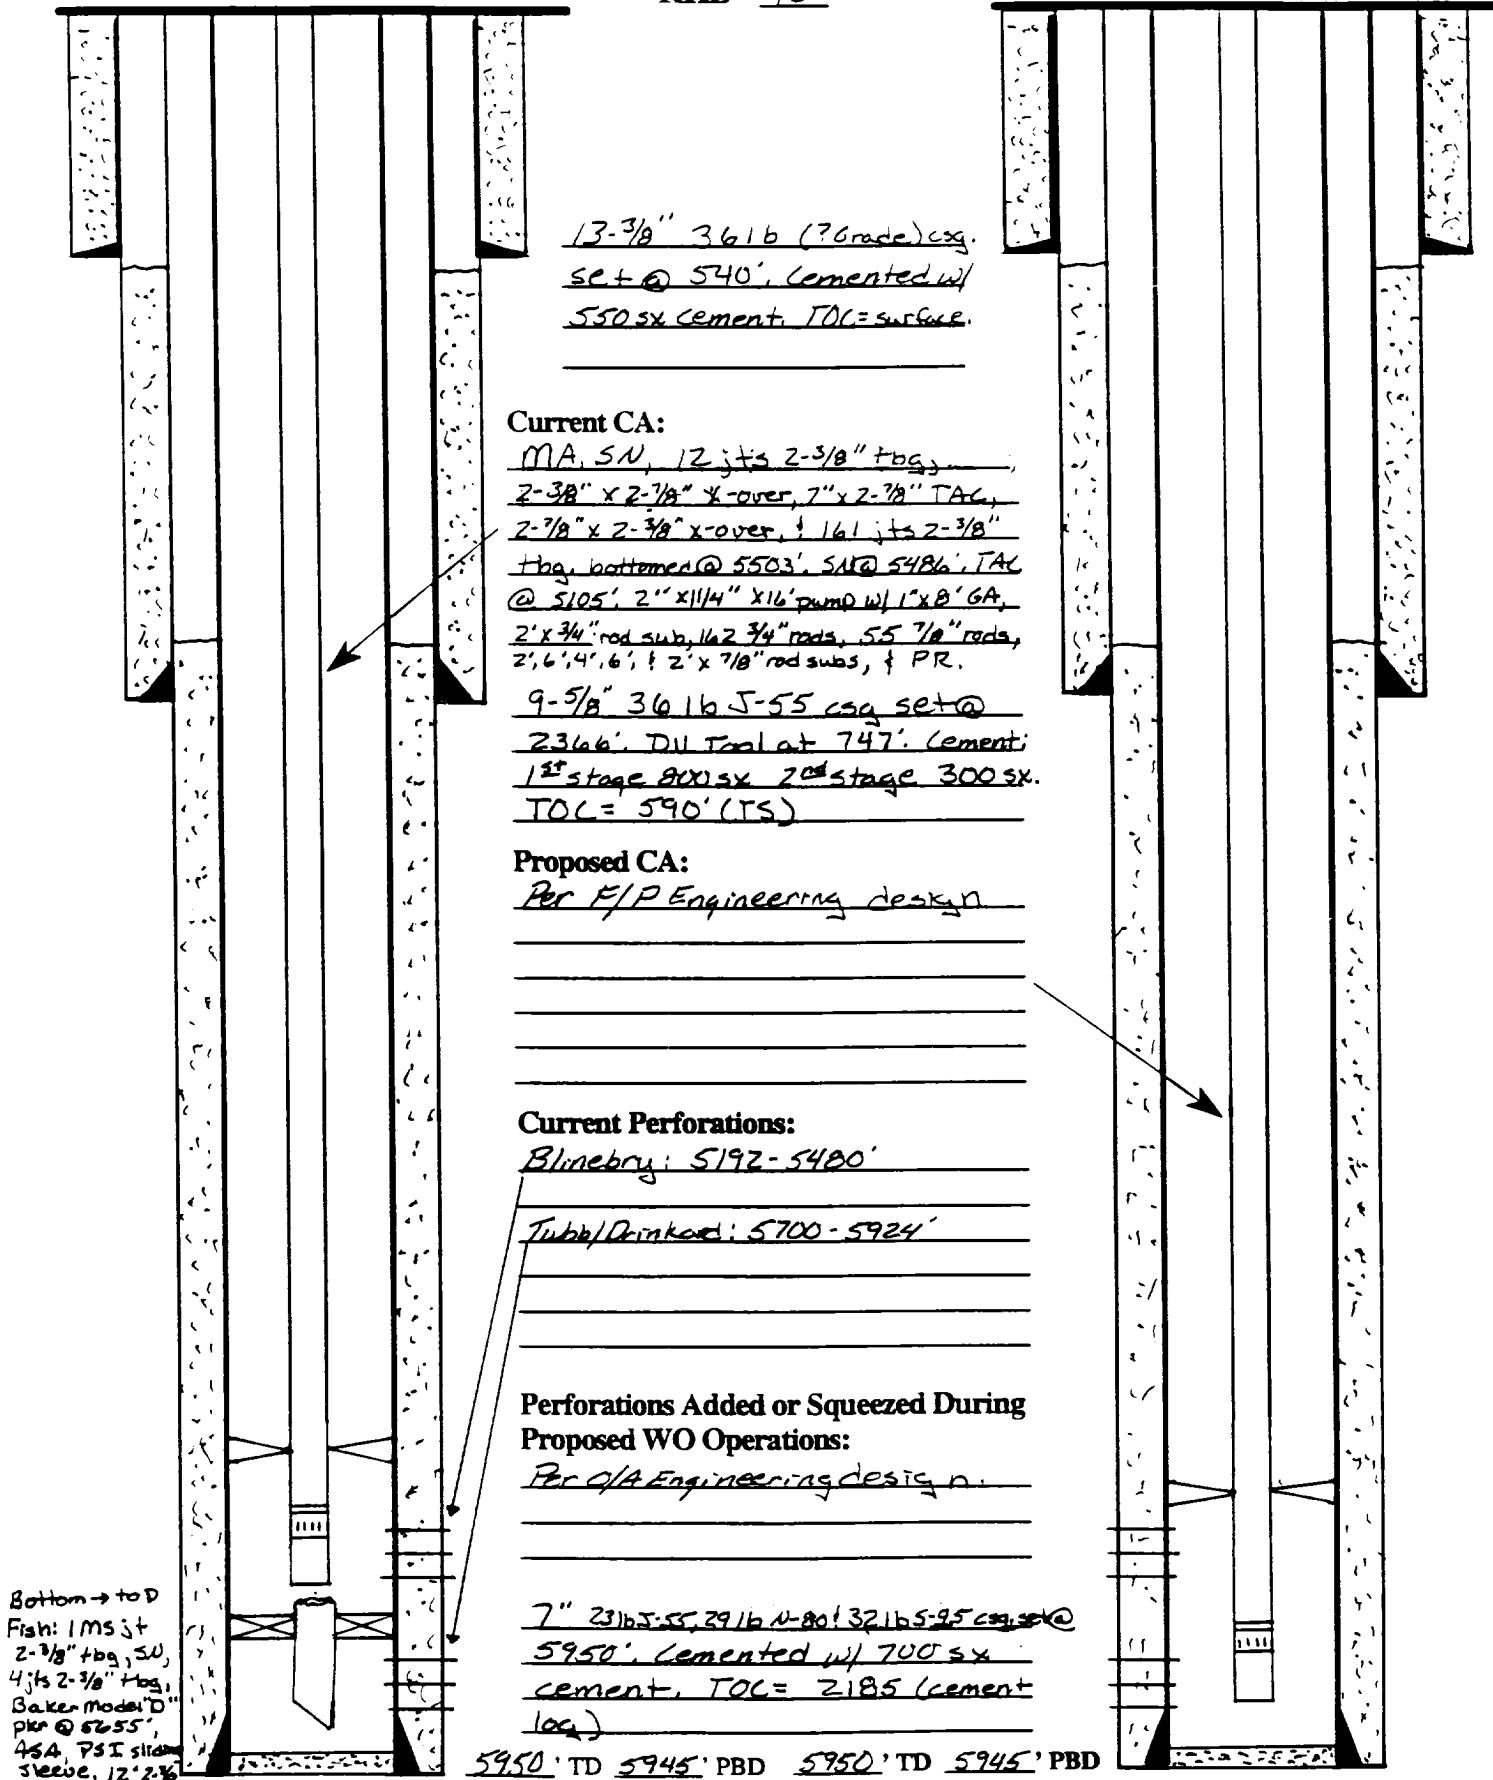 13-3/8" 36 lb (? Grade) csg.
set @ 540'. Cemented w/
550 sx cement. TOC = surface.
Current CA:
MA, SN, 12 jts 2-3/8" tbg,
2-3/8" x 2-7/8" x-over, 7" x 2-7/8" TAC,
2-7/8" x 2-3/8" x-over, & 161 jts 2-3/8"
tbg. bottomed @ 5503'. SN @ 5486'. TAC
@ 5105'. 2" x 1 1/4" x 16' pump w/ 1" x 8' GA,
2' x 3/4" rod sub, 162 3/4" rods, 55 7/8" rods,
2', 6', 4', 6', & 2' x 7/8" rod subs, & PR.
9-5/8" 36 lb J-55 csg set @
2366'. DV Tool at 747'. Cement:
1st stage 800 sx 2nd stage 300 sx.
TOC = 590' (TS)
Proposed CA:
Per F/P Engineering design
Current Perforations:
Blinebry: 5192-5480'
Tubb/Drinkard: 5700-5924'
Perforations Added or Squeezed During
Proposed WO Operations:
Per O/A Engineering design.
7" 23 lb J-55, 29 lb N-80 & 32 lb S-95 csg. set @
5950'. Cemented w/ 700 sx
cement. TOC = 2185 (cement
log)
5950' TD 5945' PBD 5950' TD 5945' PBD
Bottom → to D
Fish: 1 MS jt
2-3/8" tbg, SN,
4 jts 2-3/8" tbg,
Baker Model "D"
pkr @ 5655',
ASA, PSI sliding
sleeve, 12' 2-3/8